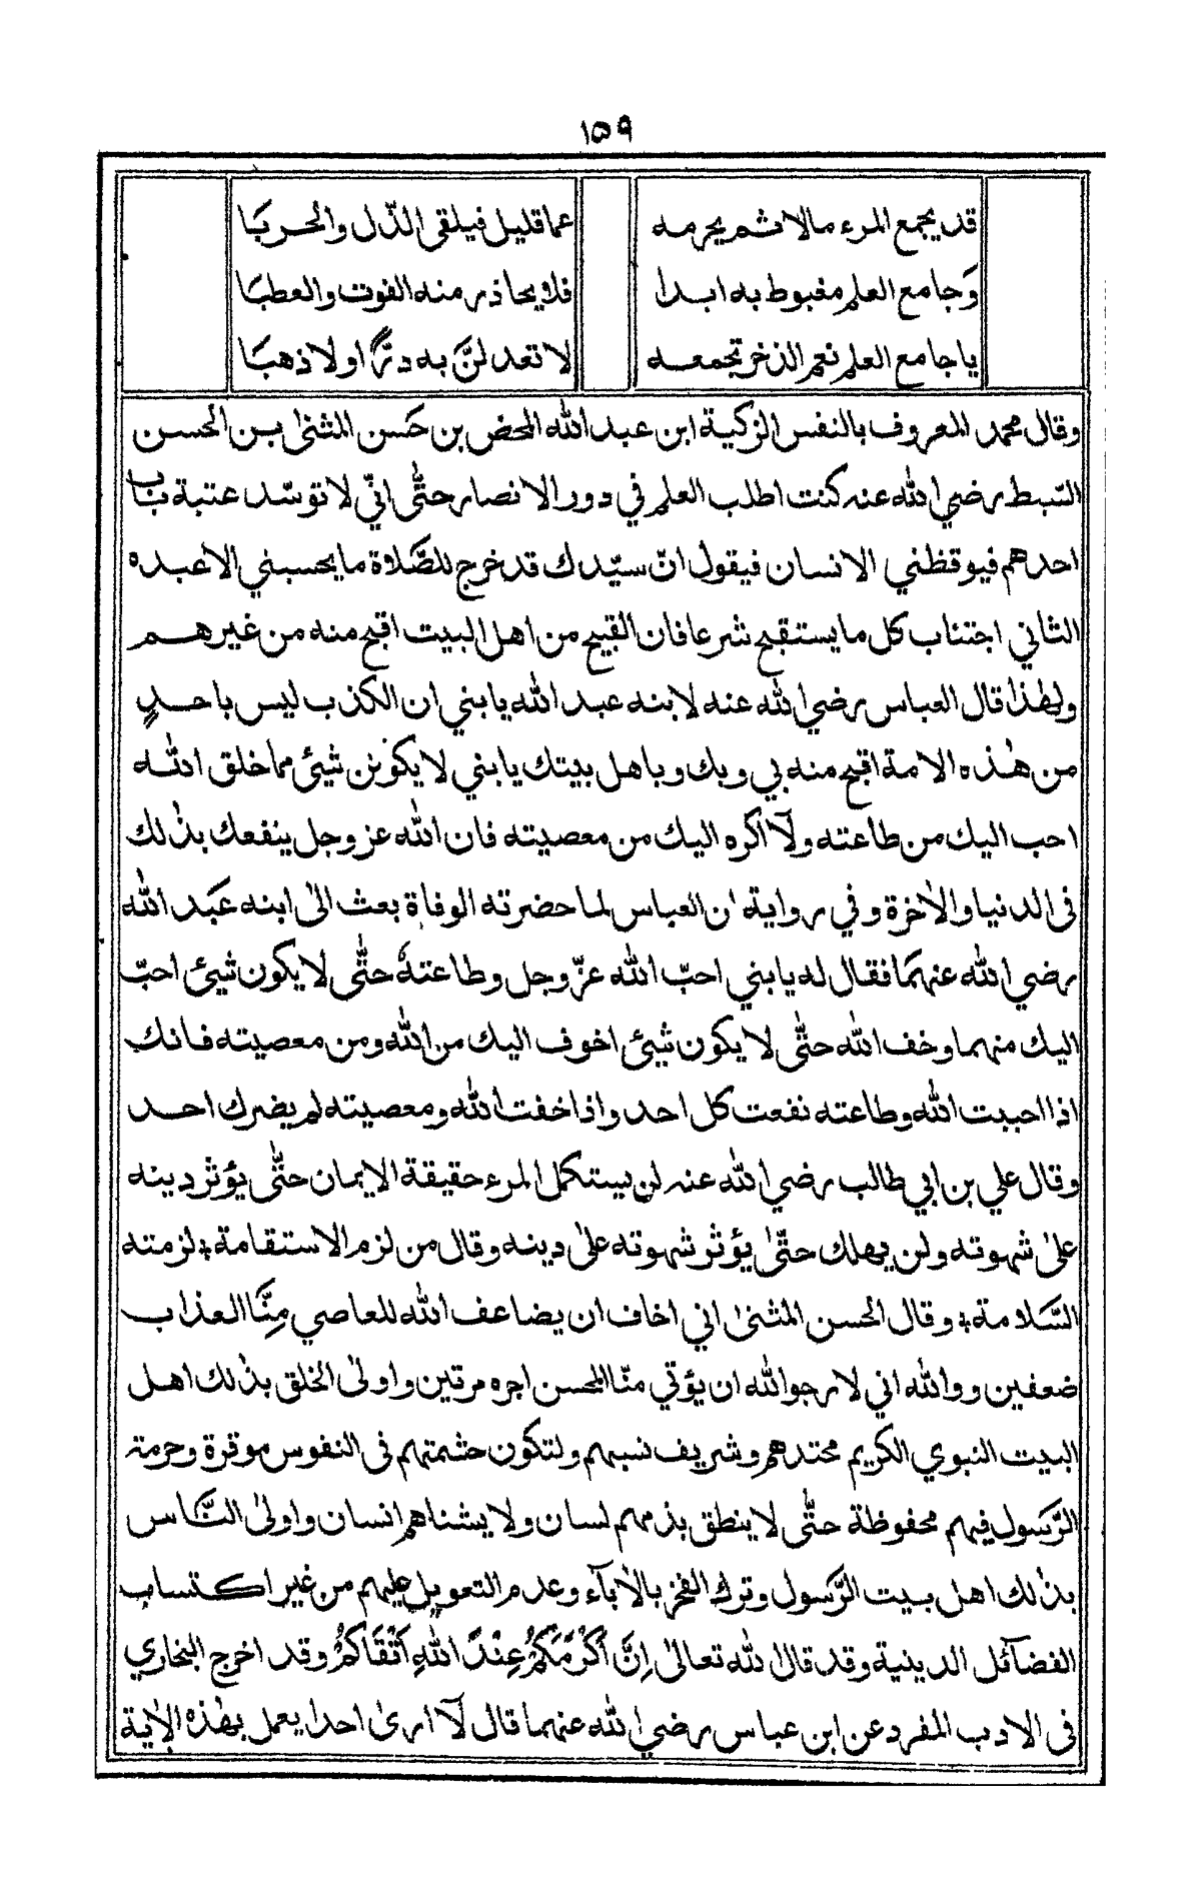 ١٥٩
قد يجمع المرء مالا ثم يحرمه عما قليل فيلقى الذّل والحربَا
وَجامع العلم مغبوط به ابدا فلا يحاذر منه الفوت والعطبَا
يا جامع العلم نعم الذخر تجمعه لا تعدلنَّ به درًّا ولا ذهبَا
وقال محمد المعروف بالنفس الزكية ابن عبد الله المحض بن حَسن المثنىٰ بن الحسن
السّبط رضي الله عنه كنت اطلب العلم في دور الانصار حتّٰى انّي لاتوسّد عتبة باب
احدهم فيوقظني الانسان فيقول انّ سيّدك قد خرج للصَّلاة ما يحسبني الا عبده
الثاني اجتناب كل ما يستقبح شرعا فان القبيح من اهل البيت اقبح منه من غيرهم
ولهٰذا قال العباس رضي الله عنه لابنه عبد الله يا بني ان الكذب ليس باحدٍ
من هٰذه الامة اقبح منه بي وبك وباهل بيتك يا بني لا يكونن شيئ مما خلق الله
احب اليك من طاعته ولآ اكره اليك من معصيته فان الله عز وجل ينفعك بذٰلك
فى الدنيا والاٰخرة وفي رواية ان العباس لما حضرته الوفاة بعث الىٰ ابنه عَبد الله
رضي الله عنهمَا فقال له يا بني احبّ الله عزّ وجل وطاعتهٗ حتّٰى لا يكون شيئ احبّ
اليك منهما وخف الله حتّٰى لا يكون شيئ اخوف اليك من الله ومن معصيته فانك
اذا احببت الله وطاعته نفعت كل احد واذا خفت الله ومعصيته لم يضرك احد
وقال علي بن ابي طالب رضي الله عنه لن يستكمل المرء حقيقة الايمان حتّٰى يؤثر دينه
علىٰ شهوته ولن يهلك حتّىٰ يؤثر شهوته علىٰ دينه وقال من لزم الاستقامة؛ لزمته
السَّلامة؛ وقال الحسن المثنىٰ اني اخاف ان يضاعف الله للعاصي مِنَّا العذاب
ضعفين ووالله اني لارجو الله ان يؤتي منّا المحسن اجره مرتين واولىٰ الخلق بذٰلك اهل
البيت النبوي الكريم محتدهم وشريف نسبهم ولتكون حشمتهم فى النفوس موقرة وحرمة
الرّسول فيهم محفوظة حتّٰى لا ينطق بذمهم لسان ولا يشناهم انسان واولىٰ النَّاس
بذٰلك اهل بيت الرّسول وترك الفخر بالاٰبآء وعدم التعويل عليهم من غير اكتساب
الفضآئل الدينية وقد قال الله تعالىٰ اِنَّ اَكْرَمَكُمْ عِنْدَ اللّٰهِ اَتْقَاكُمْ وقد اخرج البخاري
فى الادب المفرد عن ابن عباس رضي الله عنهما قال لآ ارىٰ احدا يعمل بهٰذه الاٰية